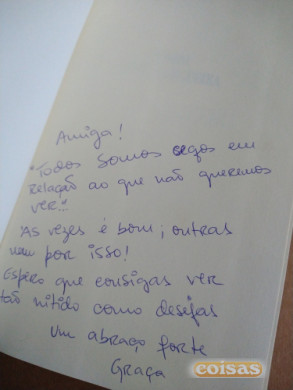 Amiga!
"Todos somos cegos em
relação ao que não queremos
ver..."
Às vezes é bom; outras
nem por isso!
Espero que consigas ver
tão nítido como desejas
Um abraço forte
Graça
coisas